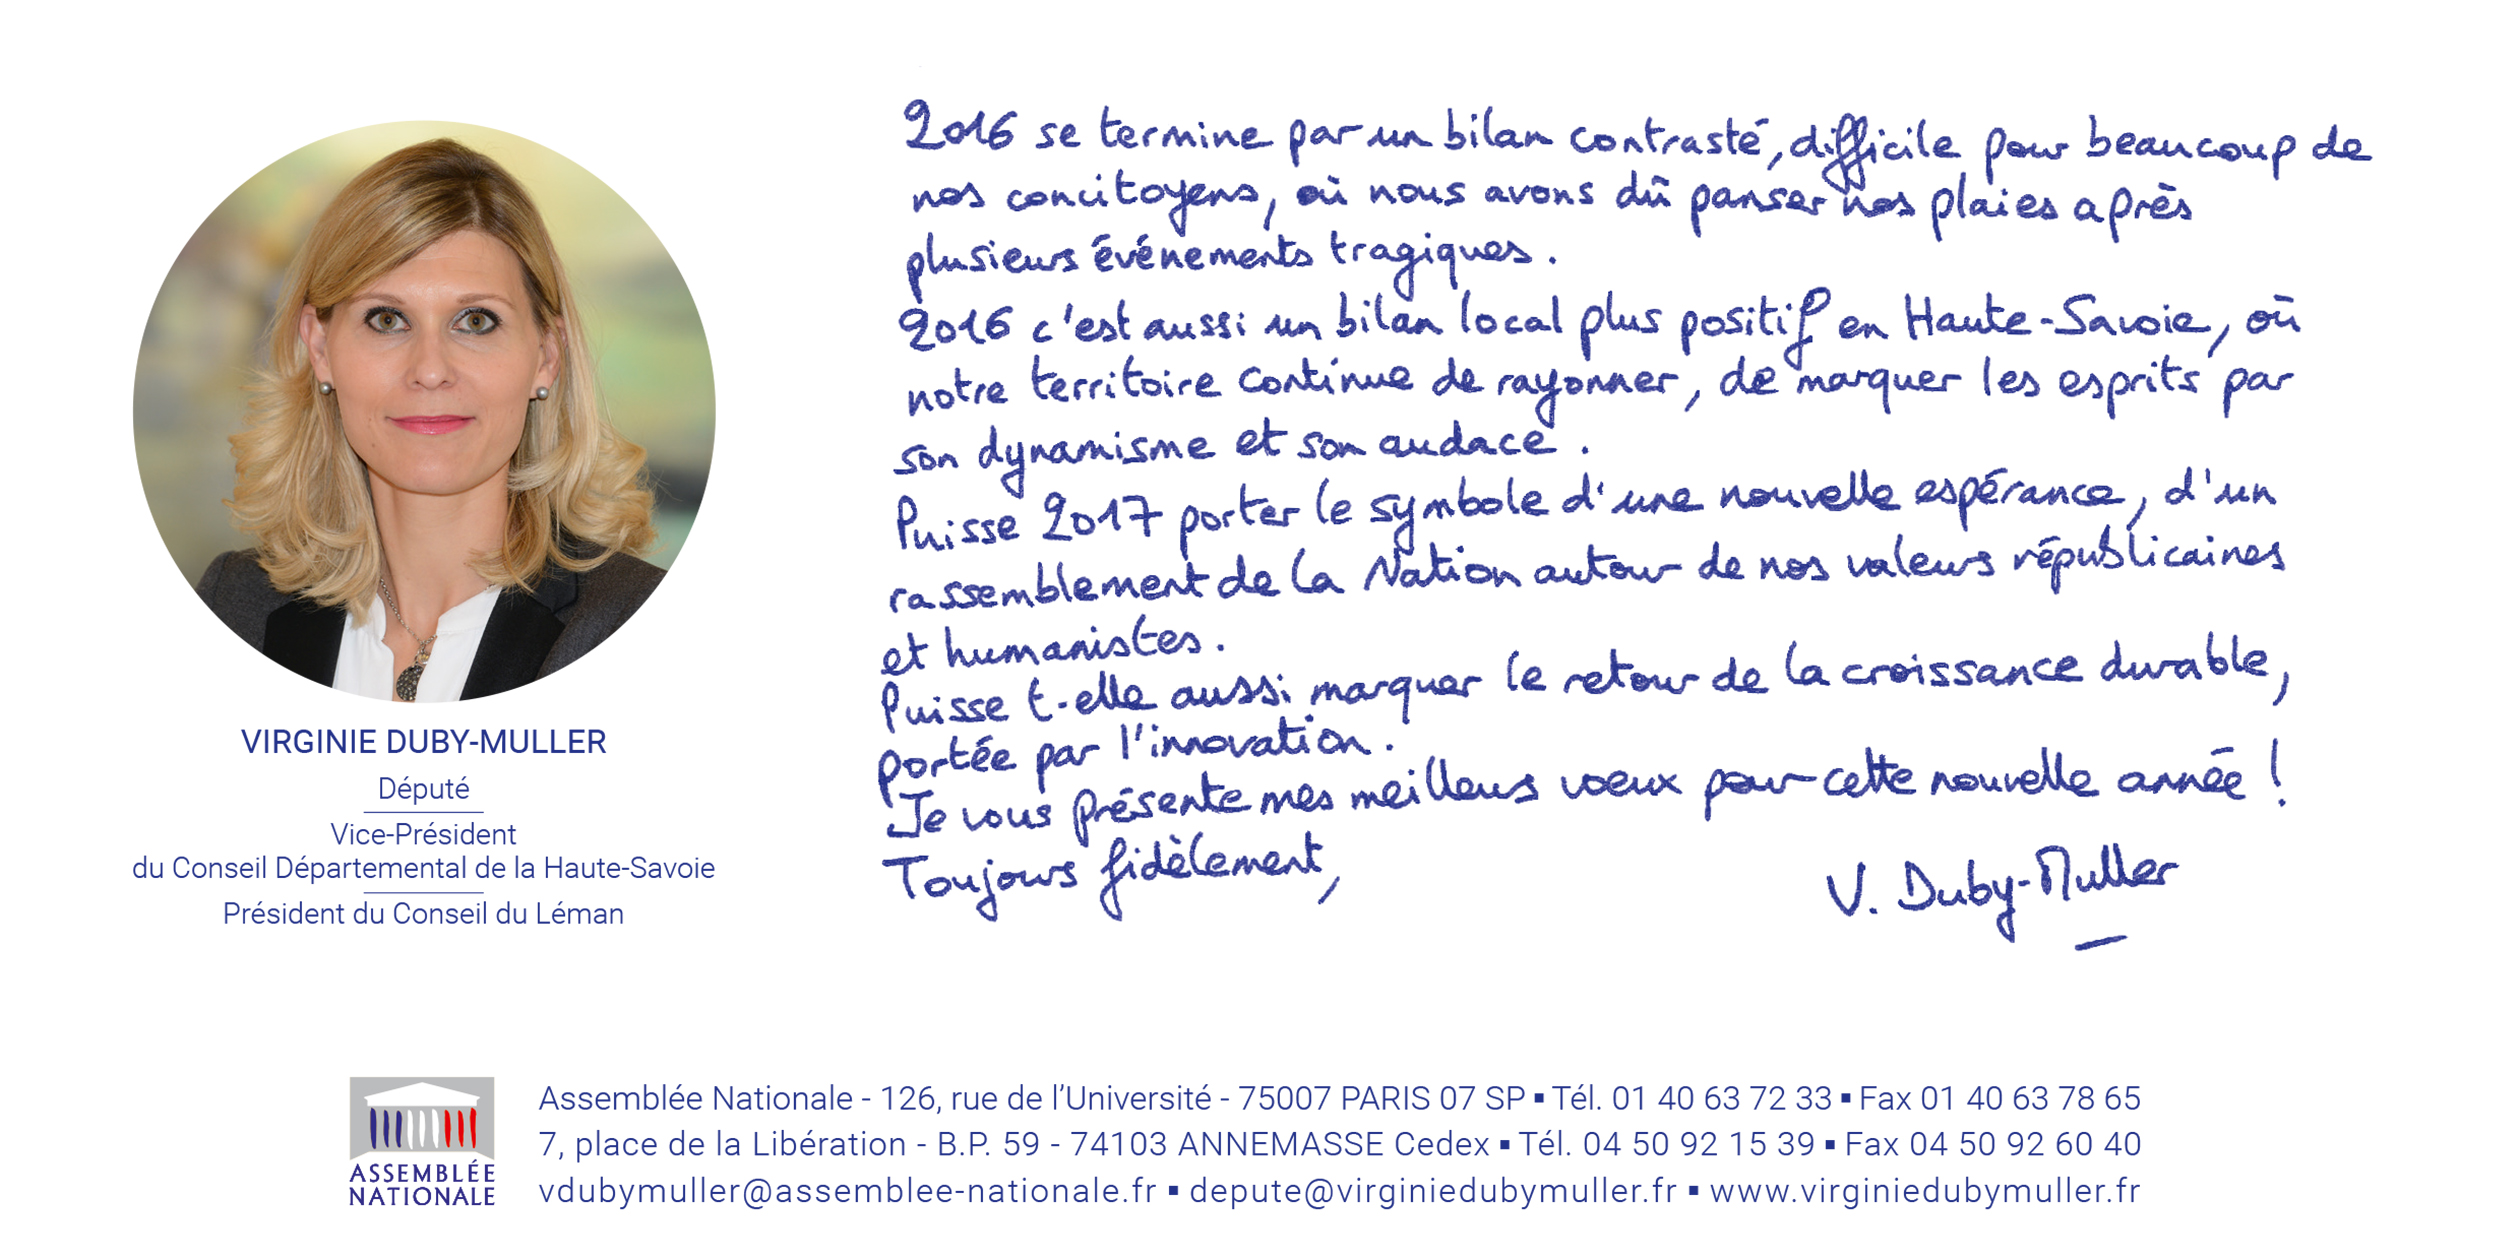 2016 se termine par un bilan contrasté, difficile pour beaucoup de
nos concitoyens, où nous avons dû panser nos plaies après
plusieurs événements tragiques.
2016 c'est aussi un bilan local plus positif en Haute-Savoie, où
notre territoire continue de rayonner, de marquer les esprits par
son dynamisme et son audace.
Puisse 2017 porter le symbole d'une nouvelle espérance, d'un
rassemblement de la Nation autour de nos valeurs républicaines
et humanistes.
Puisse t-elle aussi marquer le retour de la croissance durable,
portée par l'innovation.
Je vous présente mes meilleurs voeux pour cette nouvelle année !
Toujours fidèlement,
V. Duby-Muller
VIRGINIE DUBY-MULLER
Député
Vice-Président
du Conseil Départemental de la Haute-Savoie
Président du Conseil du Léman
ASSEMBLÉE
NATIONALE
Assemblée Nationale - 126, rue de l’Université - 75007 PARIS 07 SP ▪ Tél. 01 40 63 72 33 ▪ Fax 01 40 63 78 65
7, place de la Libération - B.P. 59 - 74103 ANNEMASSE Cedex ▪ Tél. 04 50 92 15 39 ▪ Fax 04 50 92 60 40
vdubymuller@assemblee-nationale.fr ▪ depute@virginiedubymuller.fr ▪ www.virginiedubymuller.fr